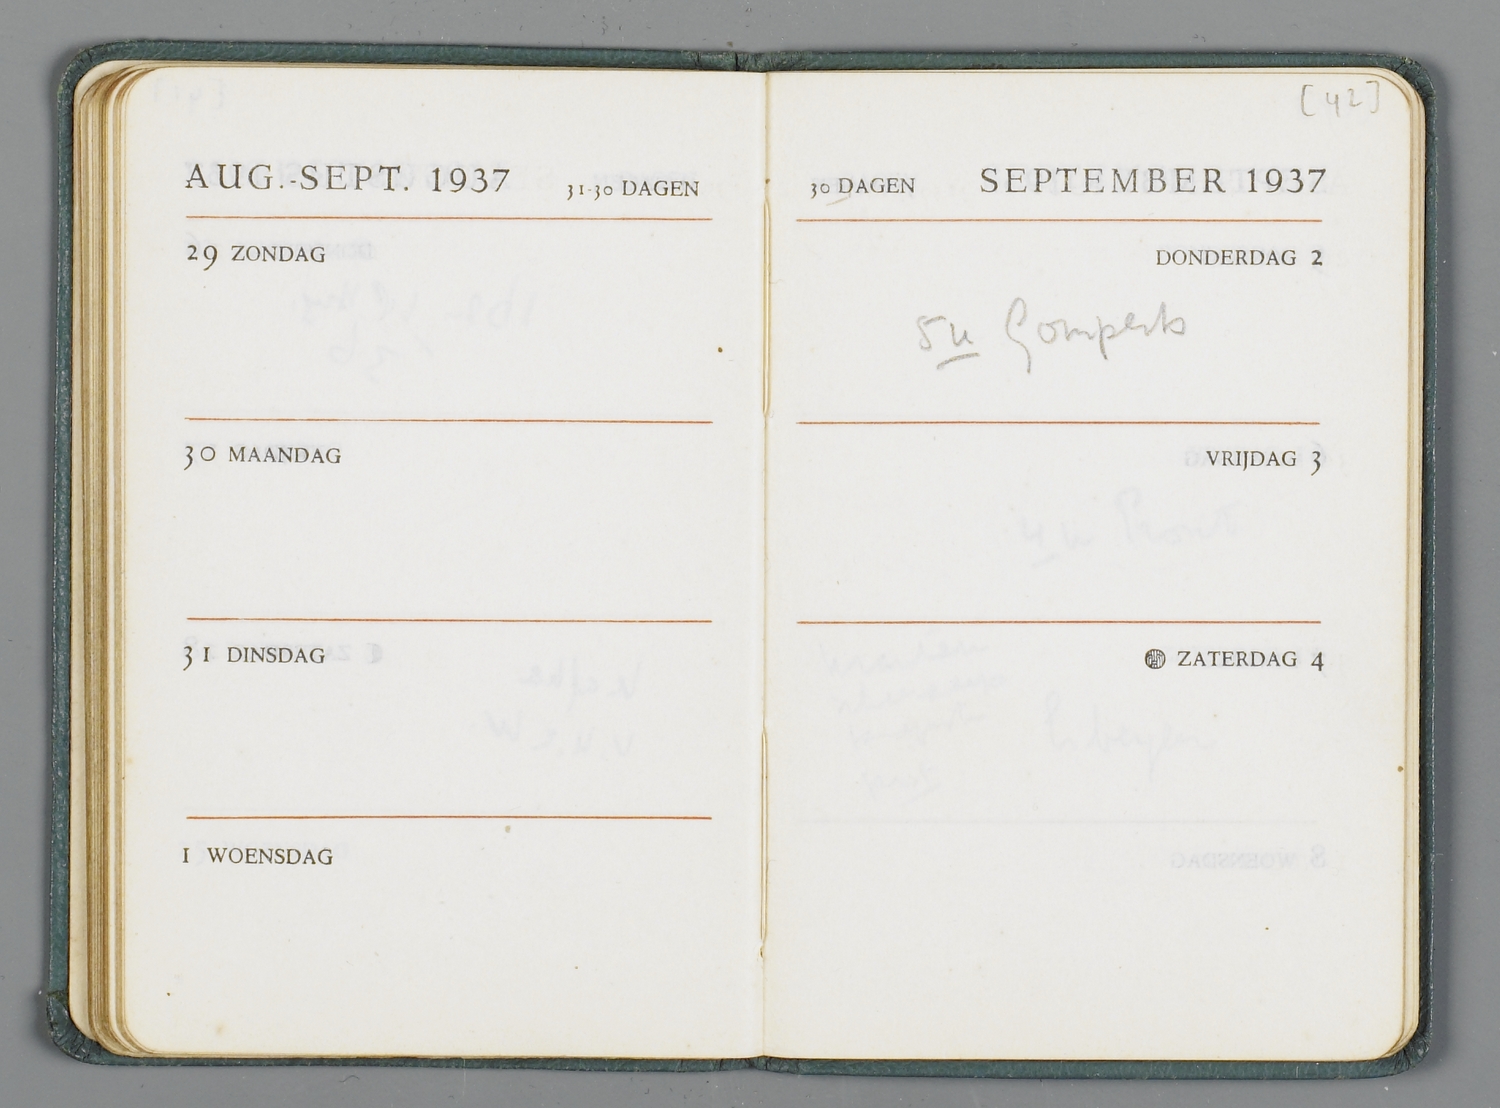 AUG.-SEPT. 1937 31-30 DAGEN
29 ZONDAG
30 MAANDAG
31 DINSDAG
1 WOENSDAG
[42]
30 DAGEN SEPTEMBER 1937
DONDERDAG 2
5 u Gomperts
VRIJDAG 3
ZATERDAG 4